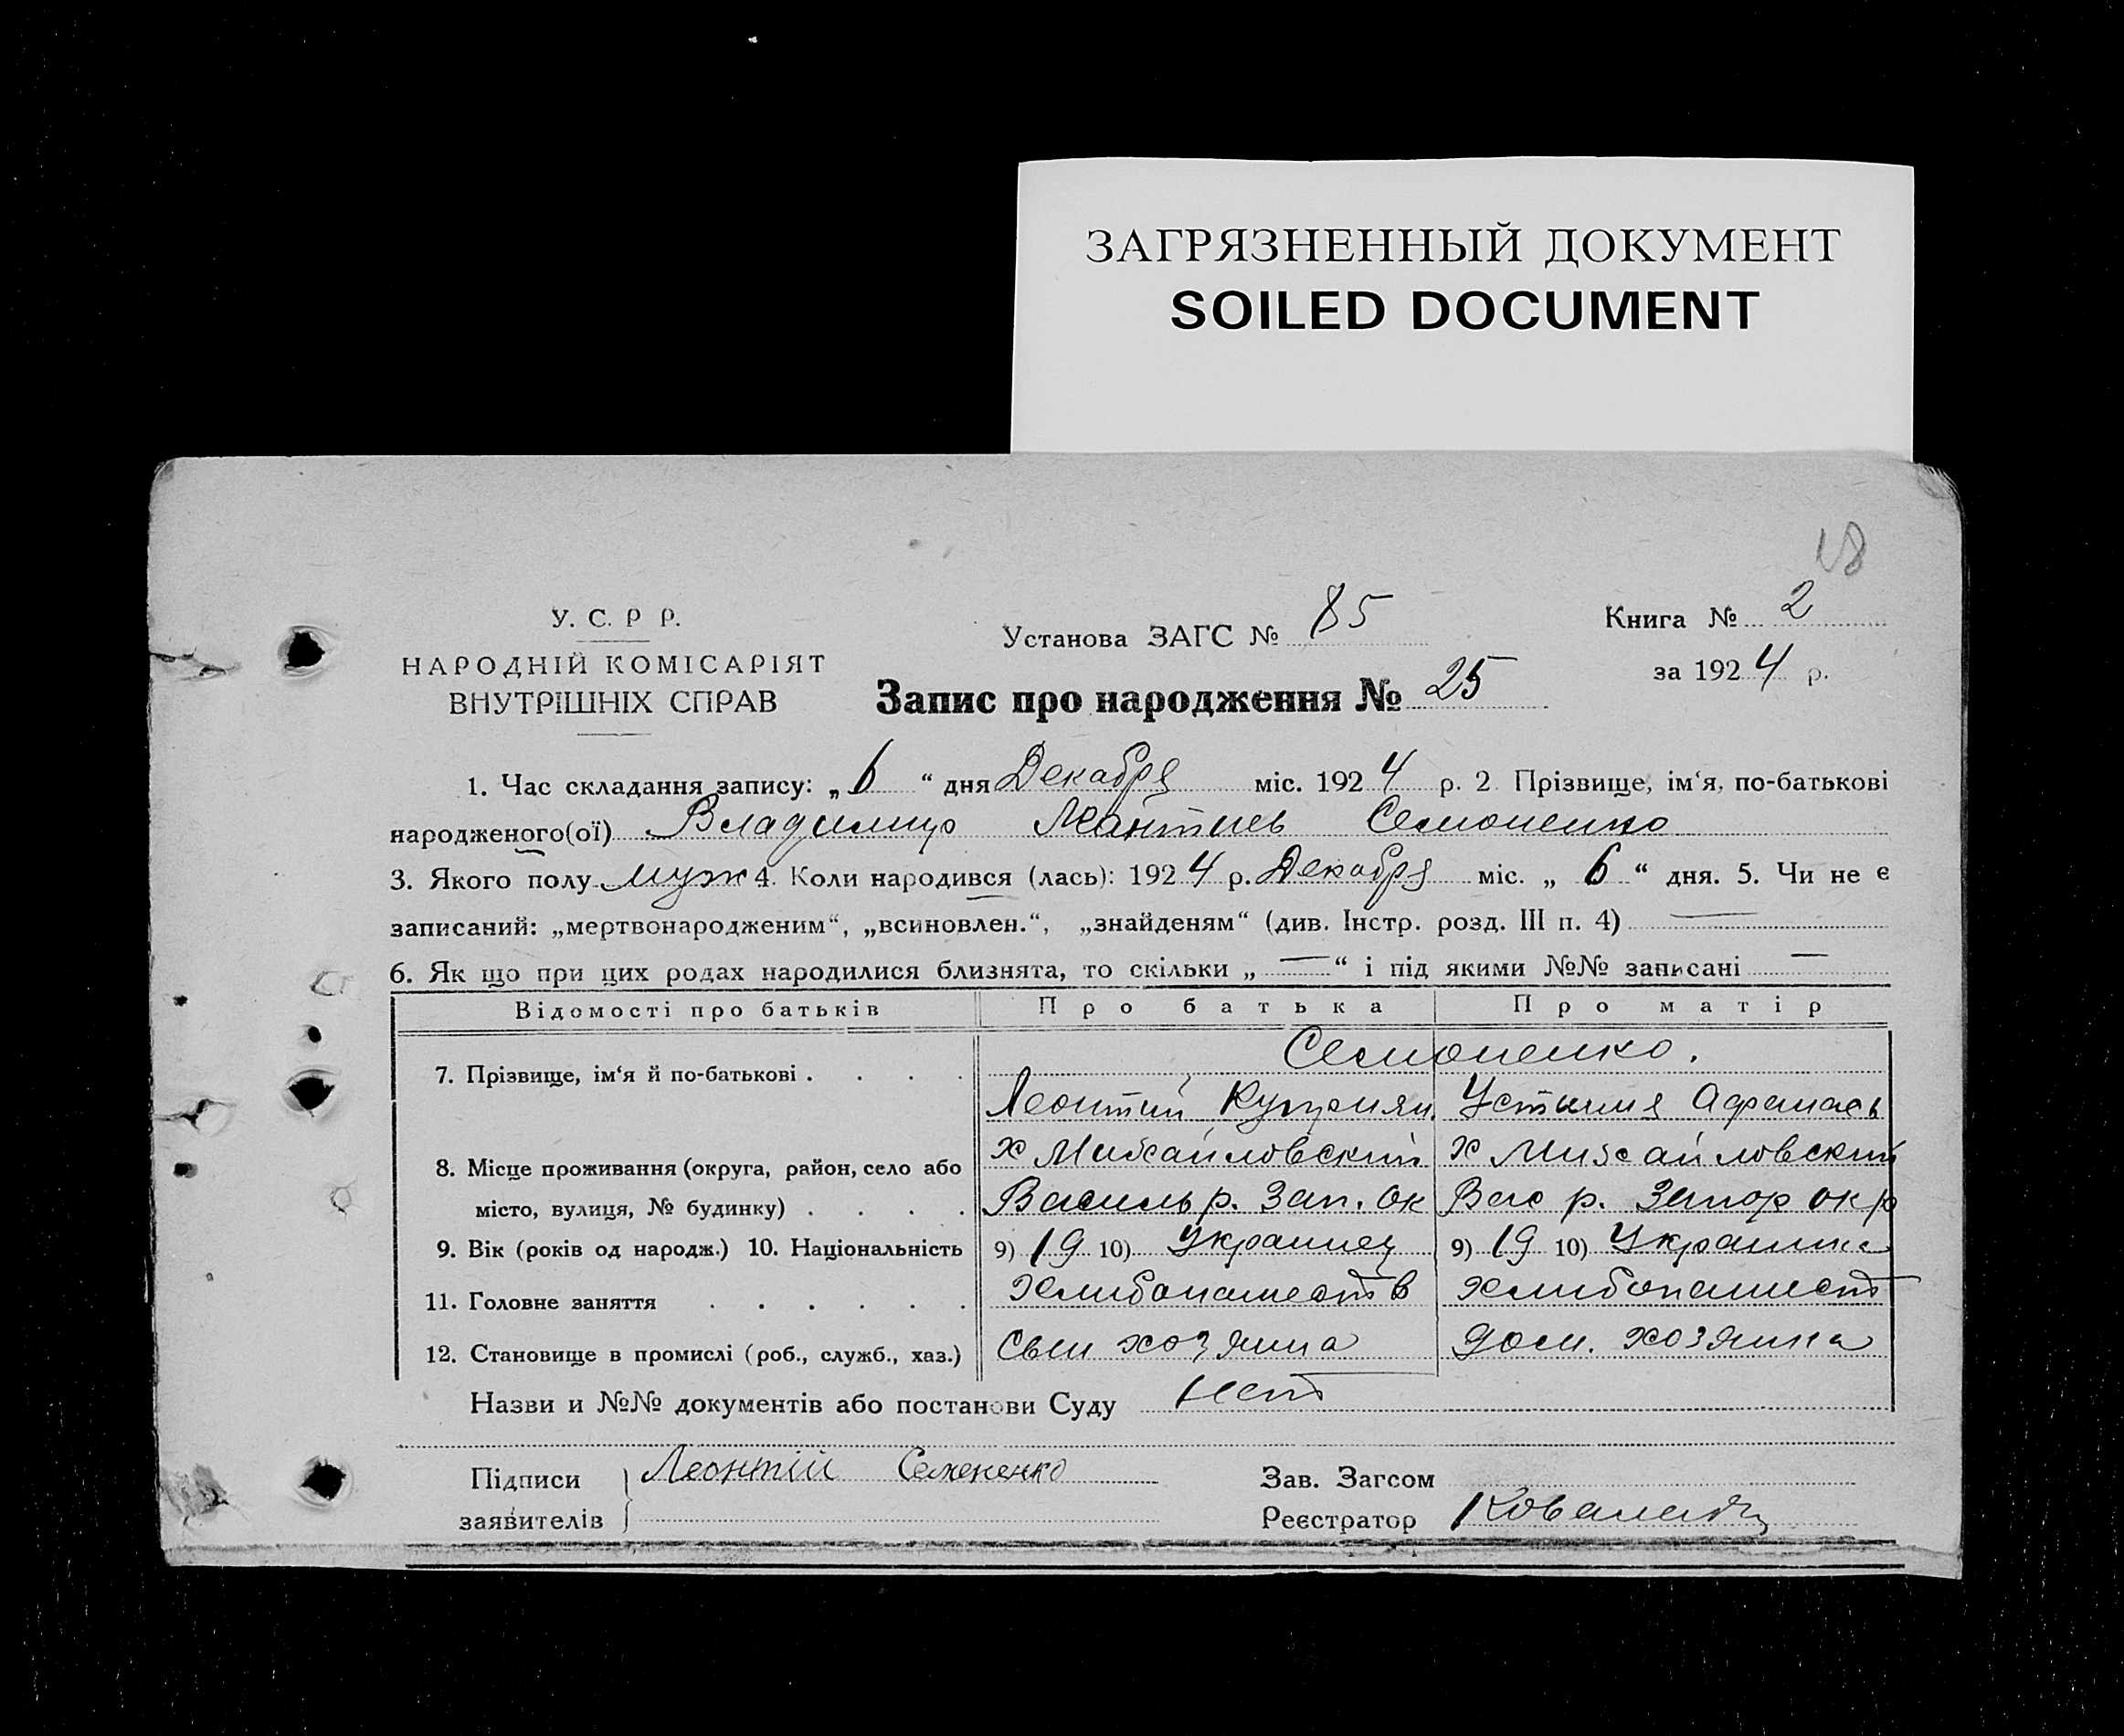 ЗАГРЯЗНЕННЫЙ ДОКУМЕНТ
SOILED DOCUMENT
18
У. С. Р Р.
НАРОДНІЙ КОМІСАРІЯТ
ВНУТРІШНІХ СПРАВ
Установа ЗАГС № 85
Книга № 2
за 1924 р.
Запис про народження № 25
1. Час складання запису: „ 6 “ дня Декабря міс. 1924 р. 2 Прізвище, ім‘я, по-батькові
народженого(ої) Владимир Леонтиев Семоненко
3. Якого полу муж 4. Коли народився (лась): 1924 р. Декабря міс. „ 6 “ дня. 5. Чи не є
записаний: „мертвонародженим“, „всиновлен.“, „знайденям“ (див. Інстр. розд. III п. 4) —
6. Як що при цих родах народилися близнята, то скільки „ — “ і під якими №№ записані —
Відомості про батьків Про батька Про матір
Семоненко.
7. Прізвище, ім‘я й по-батькові . . . .
Леонтий Куприян. Устиния Афанась
х Михайловский х Михайловский
8. Місце проживання (округа, район, село або
місто, вулиця, № будинку) . . . . Василь р. Зап. ок Вас р. Запор окр
9. Вік (років од народж.) 10. Національність 9) 19 10) Украинец 9) 19 10) Украинка
11. Головне заняття . . . . . . Хлибопашеств хлибопашест
12. Становище в промислі (роб., служб., хаз.) Сын хозяина дом. хозяика
Назви и №№ документів або постанови Суду нет
Підписи Леонтій Семененко
заявителів
Зав. Загсом
Реєстратор